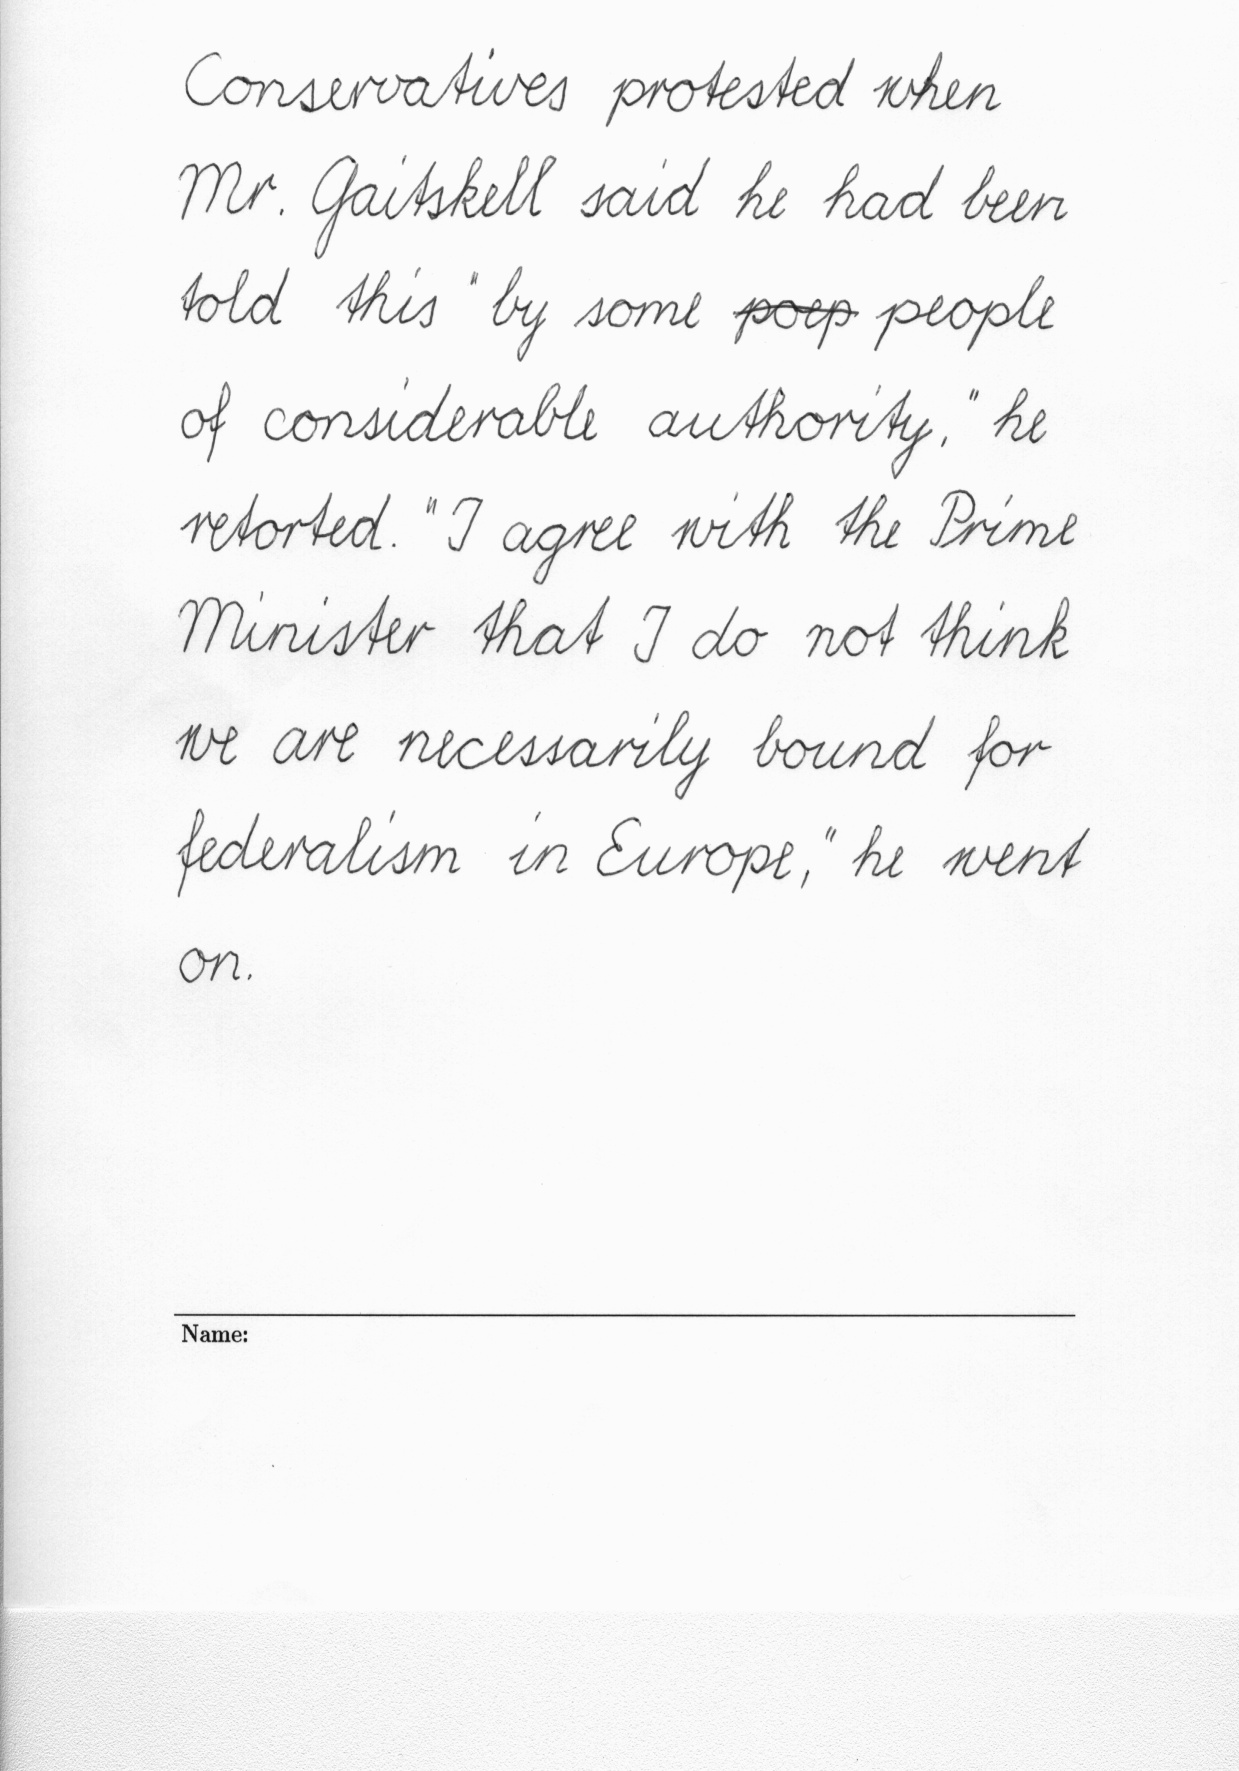 Conservatives protested when
Mr. Gaitskell said he had been
told this "by some poep people
of considerable authority," he
retorted. "I agree with the Prime
Minister that I do not think
we are necessarily bound for
federalism in Europe," he went
on.
Name: